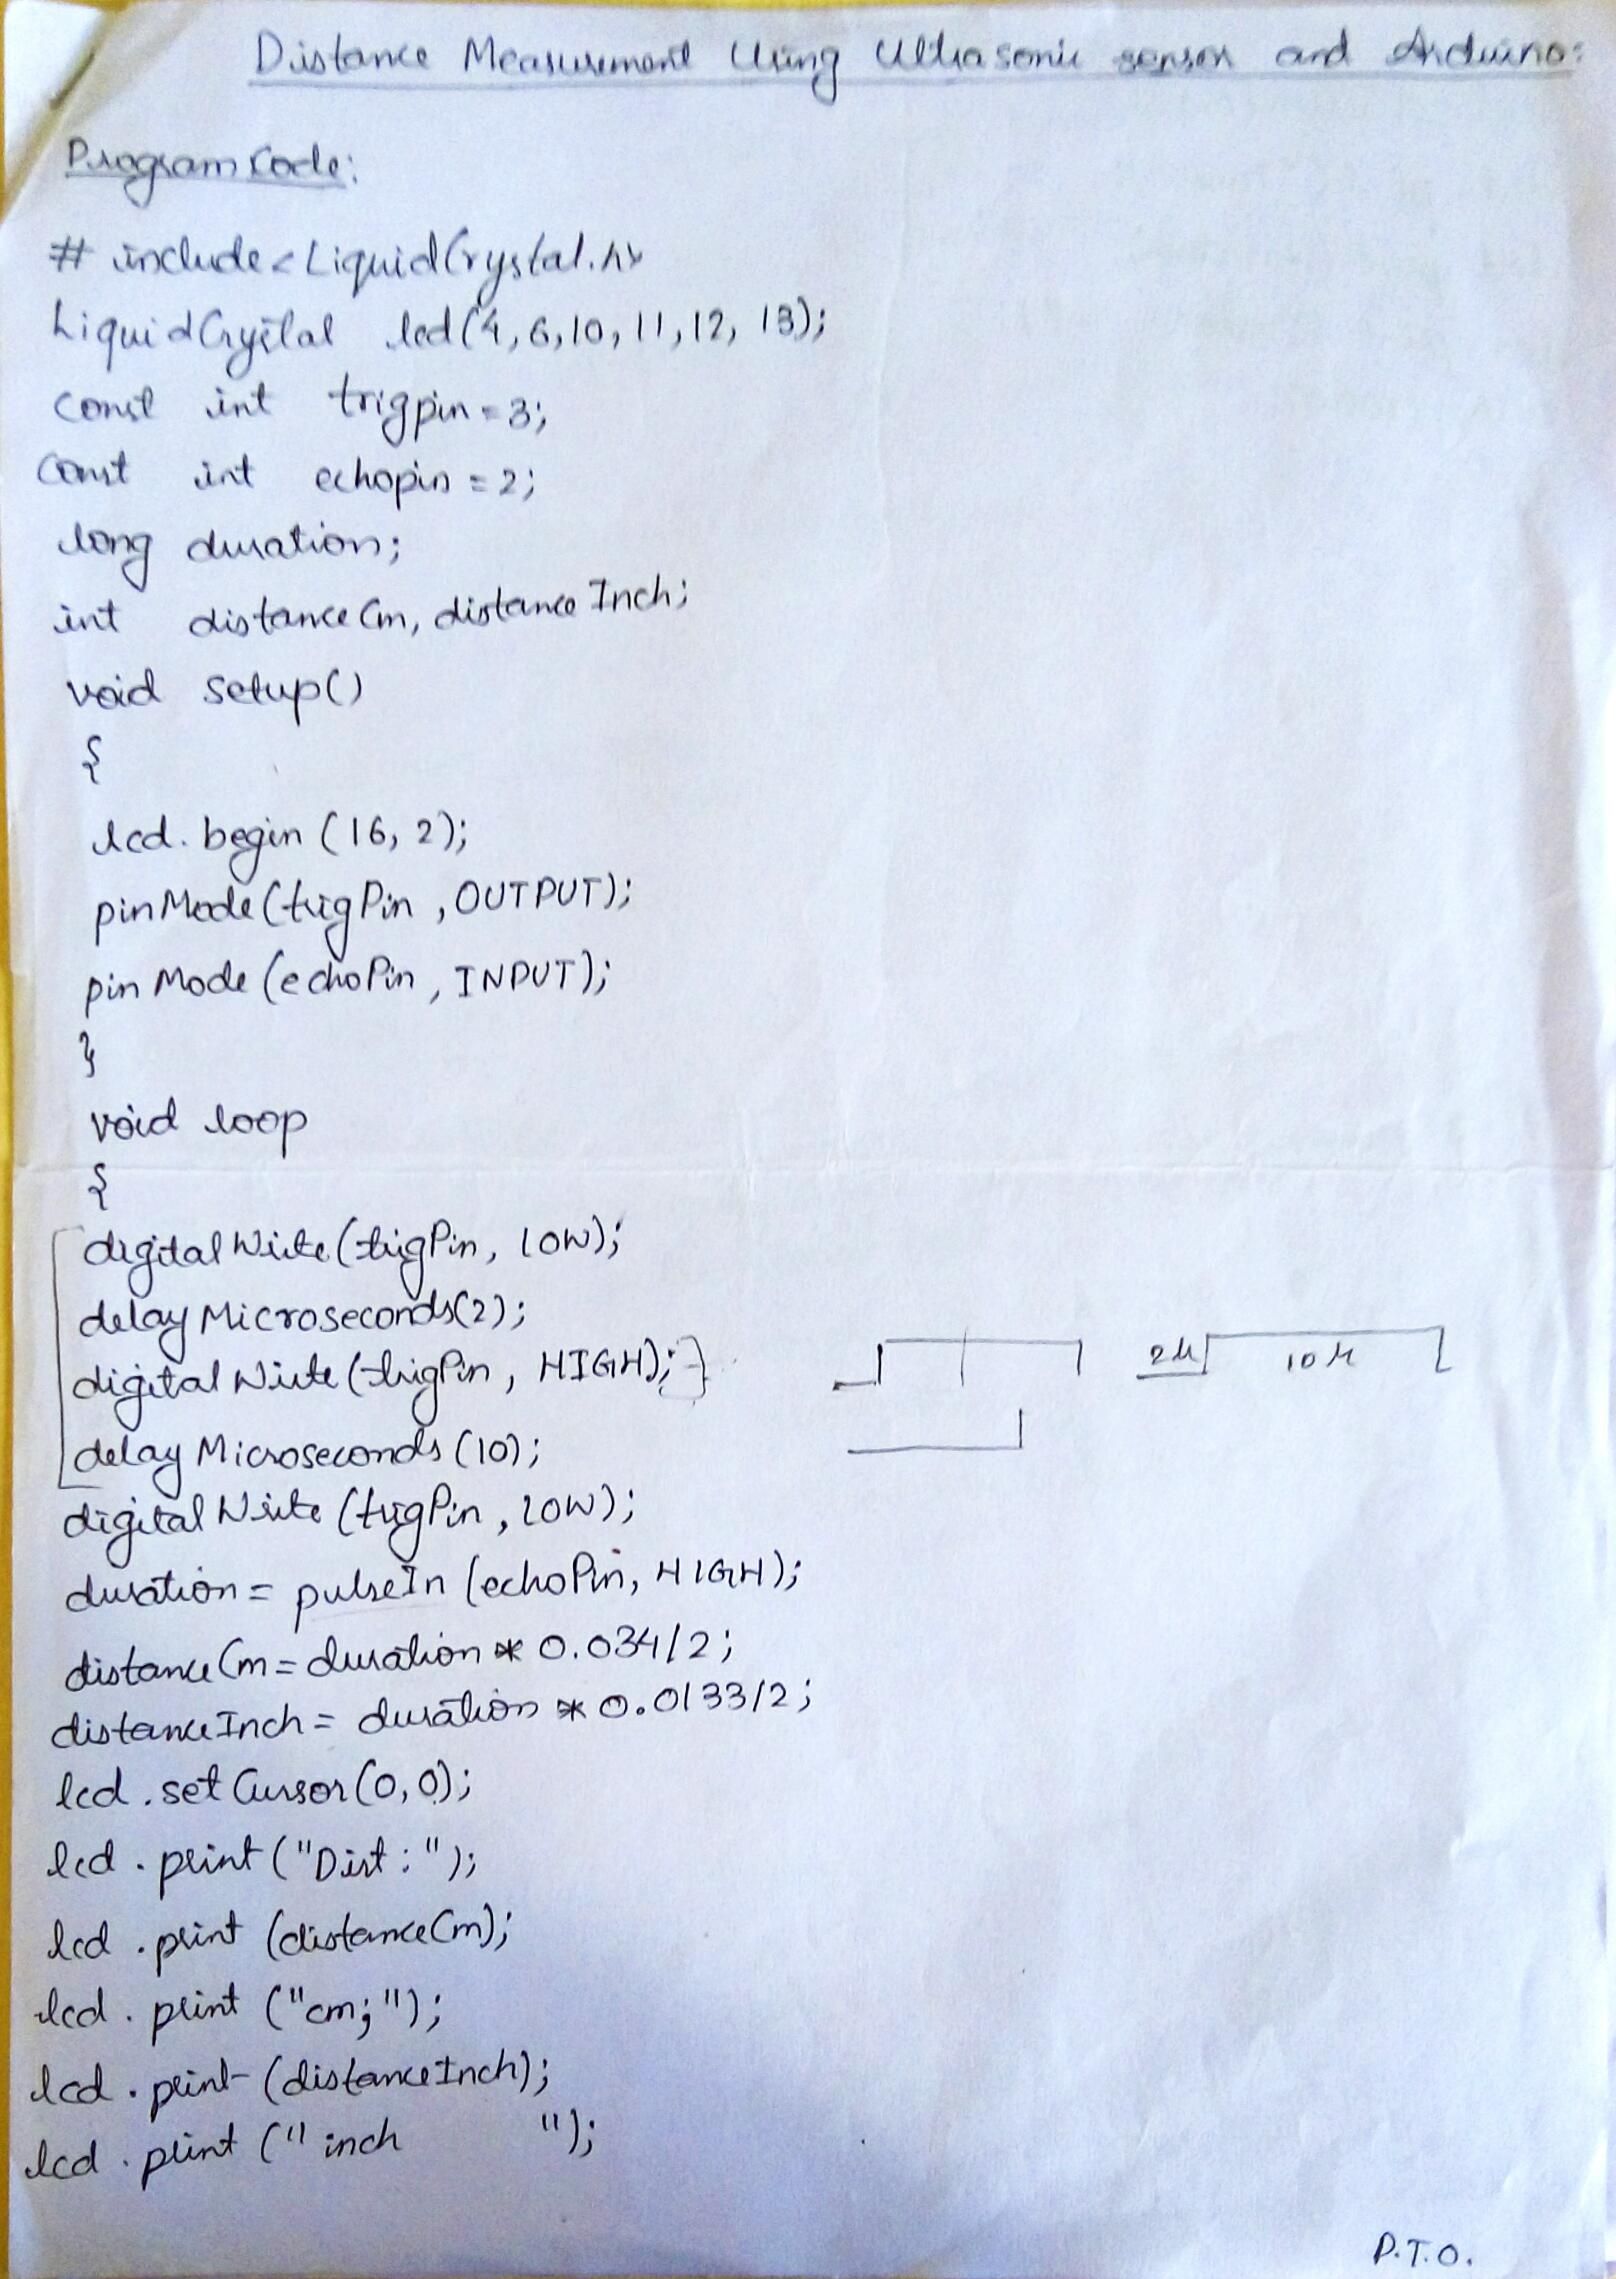 Distance Measurement Using Ultrasonic sensor and Arduino:
Program Code:
# include<LiquidCrystal.h>
LiquidCrystal lcd(4,6,10,11,12, 13);
const int trigpin=3;
const int echopin=2;
long duration;
int distanceCm, distanceInch;
void setup()
{
lcd.begin (16, 2);
pinMode(trigPin ,OUTPUT);
pinMode (echoPin , INPUT);
}
void loop
{
digitalWrite (trigPin, LOW);
delayMicroseconds(2);
digitalWrite (trigPin, HIGH);}
2µ 10µ
delayMicroseconds (10);
digitalWrite (trigPin, LOW);
duration = pulseIn (echoPin, HIGH);
distanceCm = duration * 0.034/2;
distanceInch = duration * 0.0133/2;
lcd .setCursor(0,0);
lcd .print ("Dist: ");
lcd .print (distanceCm);
lcd . print ("cm;");
lcd . print (distanceInch);
lcd . print (" inch ");
P.T.O.